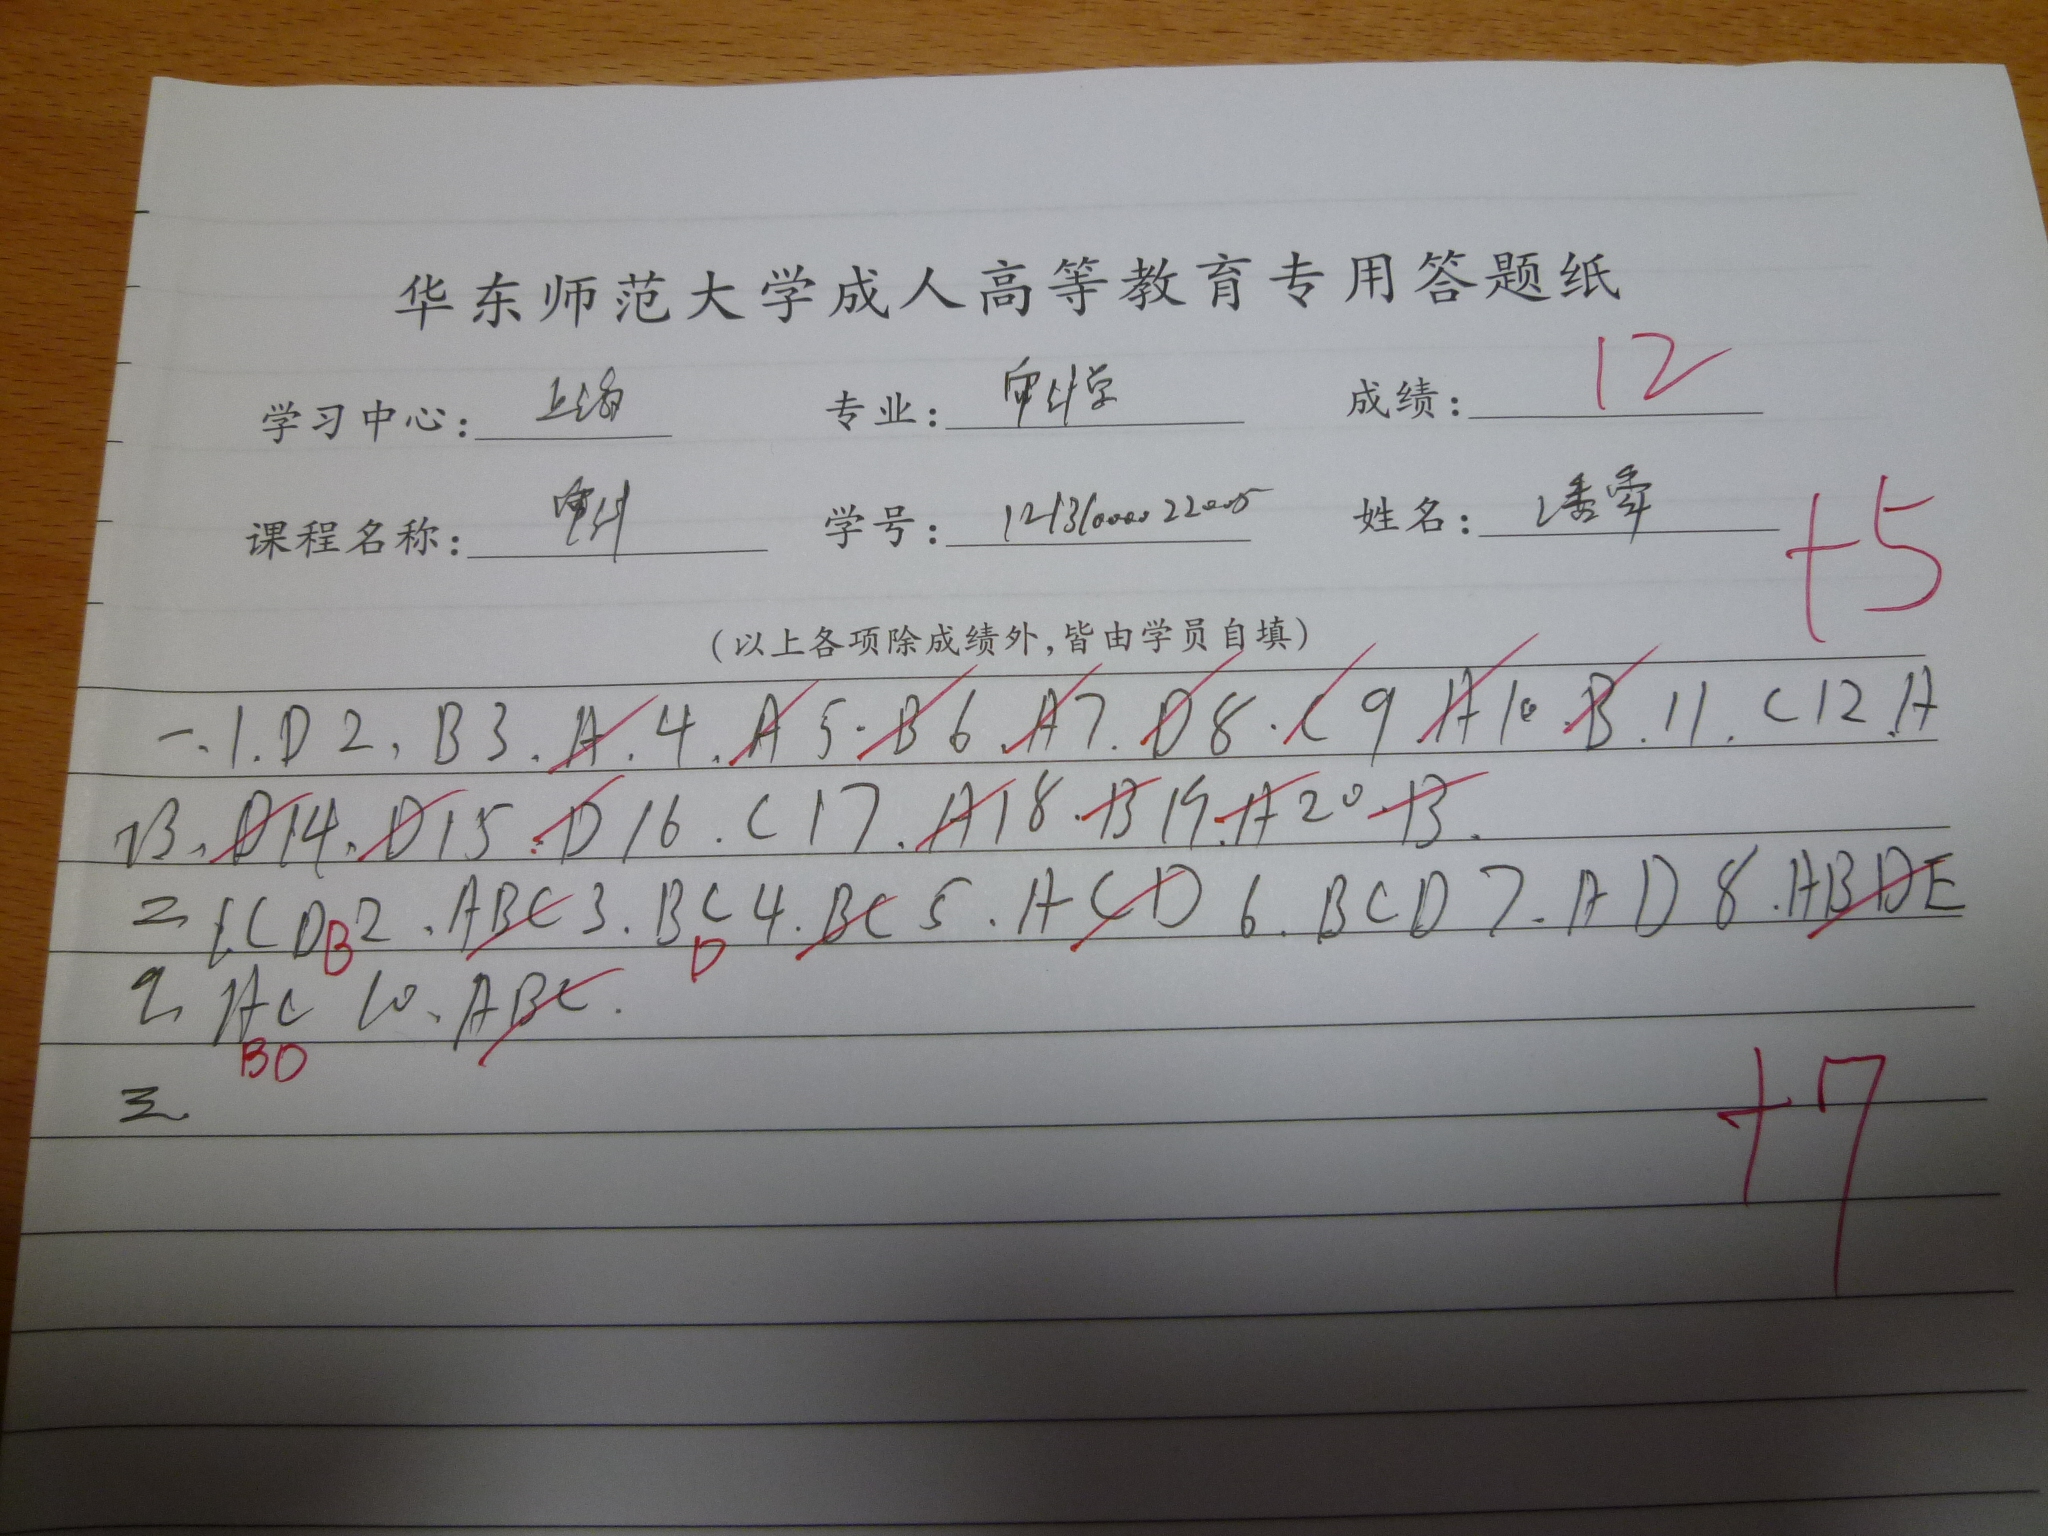 华东师范大学成人高等教育专用答题纸
学习中心：上海 专业：审计学 成绩：12
课程名称：审计 学号： 姓名：潘
+5
（以上各项除成绩外，皆由学员自填）
一.1.D 2.B 3.A.4.A 5.B 6.A 7.D 8.C 9.A 10.B.11.C 12.A
13.D 14.D 15.D 16.C 17.A 18.B 19.A 20.B.
二 1.CD B 2.ABC 3.BC D 4.BC 5.ACD 6.BCD 7.AD 8.ABDE
9.AC 10.ABC.
BD
三.
+7